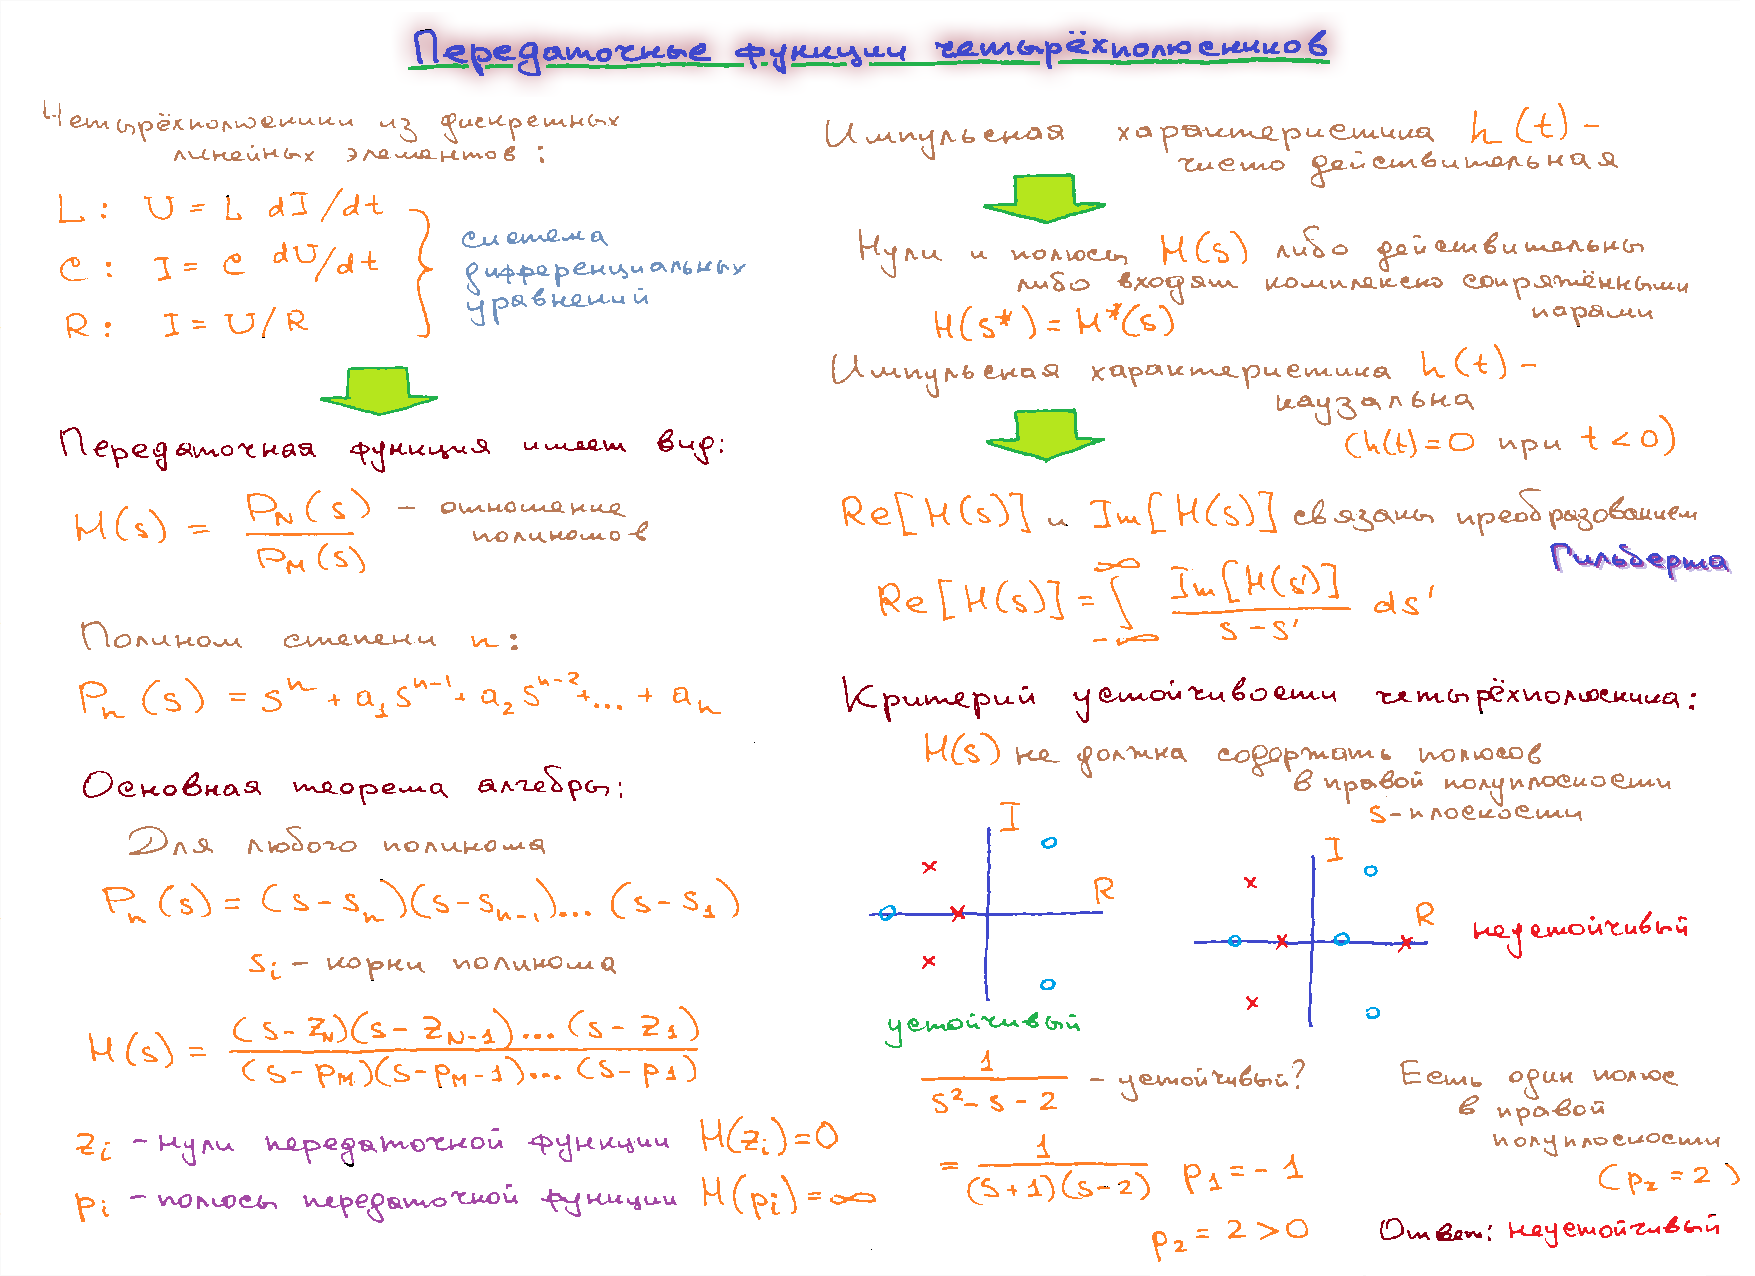 Передаточные функции четырёхполюсников
Четырёхполюсники из дискретных
линейных элементов:
L: U = L dI/dt
C: I = C dU/dt
R: I = U/R
система
дифференциальных
уравнений
Передаточная функция имеет вид:
H(s) = P_N(s) / P_M(s) - отношение
полиномов
Полином степени n:
P_n(s) = s^n + a_1 s^{n-1} + a_2 s^{n-2} + ... + a_n
Основная теорема алгебры:
Для любого полинома
P_n(s) = (s-s_n)(s-s_{n-1})... (s-s_1)
s_i - корни полинома
H(s) = (s-z_N)(s-z_{N-1})... (s-z_1) / (s-p_M)(s-p_{M-1})... (s-p_1)
z_i - нули передаточной функции H(z_i)=0
p_i - полюсы передаточной функции H(p_i)=∞
Импульсная характеристика h(t) -
чисто действительная
Нули и полюсы H(s) либо действительны
либо входят комплексно сопряжёнными
парами
H(s*) = H*(s)
Импульсная характеристика h(t) -
каузальна
(h(t)=0 при t<0)
Re[H(s)] и Im[H(s)] связаны преобразованием
Гильберта
Re[H(s)] = ∫_{-∞}^{∞} Im[H(s')] / (s-s') ds'
Критерий устойчивости четырёхполюсника:
H(s) не должна содержать полюсов
в правой полуплоскости
s-плоскости
I
R
устойчивый
I
R
неустойчивый
1 / (s²-s-2) - устойчивый?
= 1 / (s+1)(s-2) p_1 = -1
p_2 = 2 > 0
Есть один полюс
в правой
полуплоскости
(p_2 = 2)
Ответ: неустойчивый